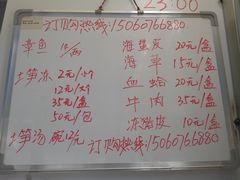 23:00
订购热线:15060766880
章鱼 12/两
海蜇皮 20元/盒
土笋冻 2元/小个
海苹 15元/盒
12元/大个
血蛤 20元/盒
35元/盒
牛肉 35元/盒
50元/包
冻猪皮 10元/盒
土笋汤 碗12元
订购热线:15060766880